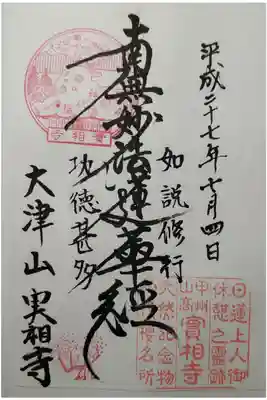 平成二十七年七月四日
如説修行
南無妙法蓮華経
功徳甚多
大津山 実相寺
日蓮上人御
休憩之霊跡
甲州
山高
實相寺
天然記念物